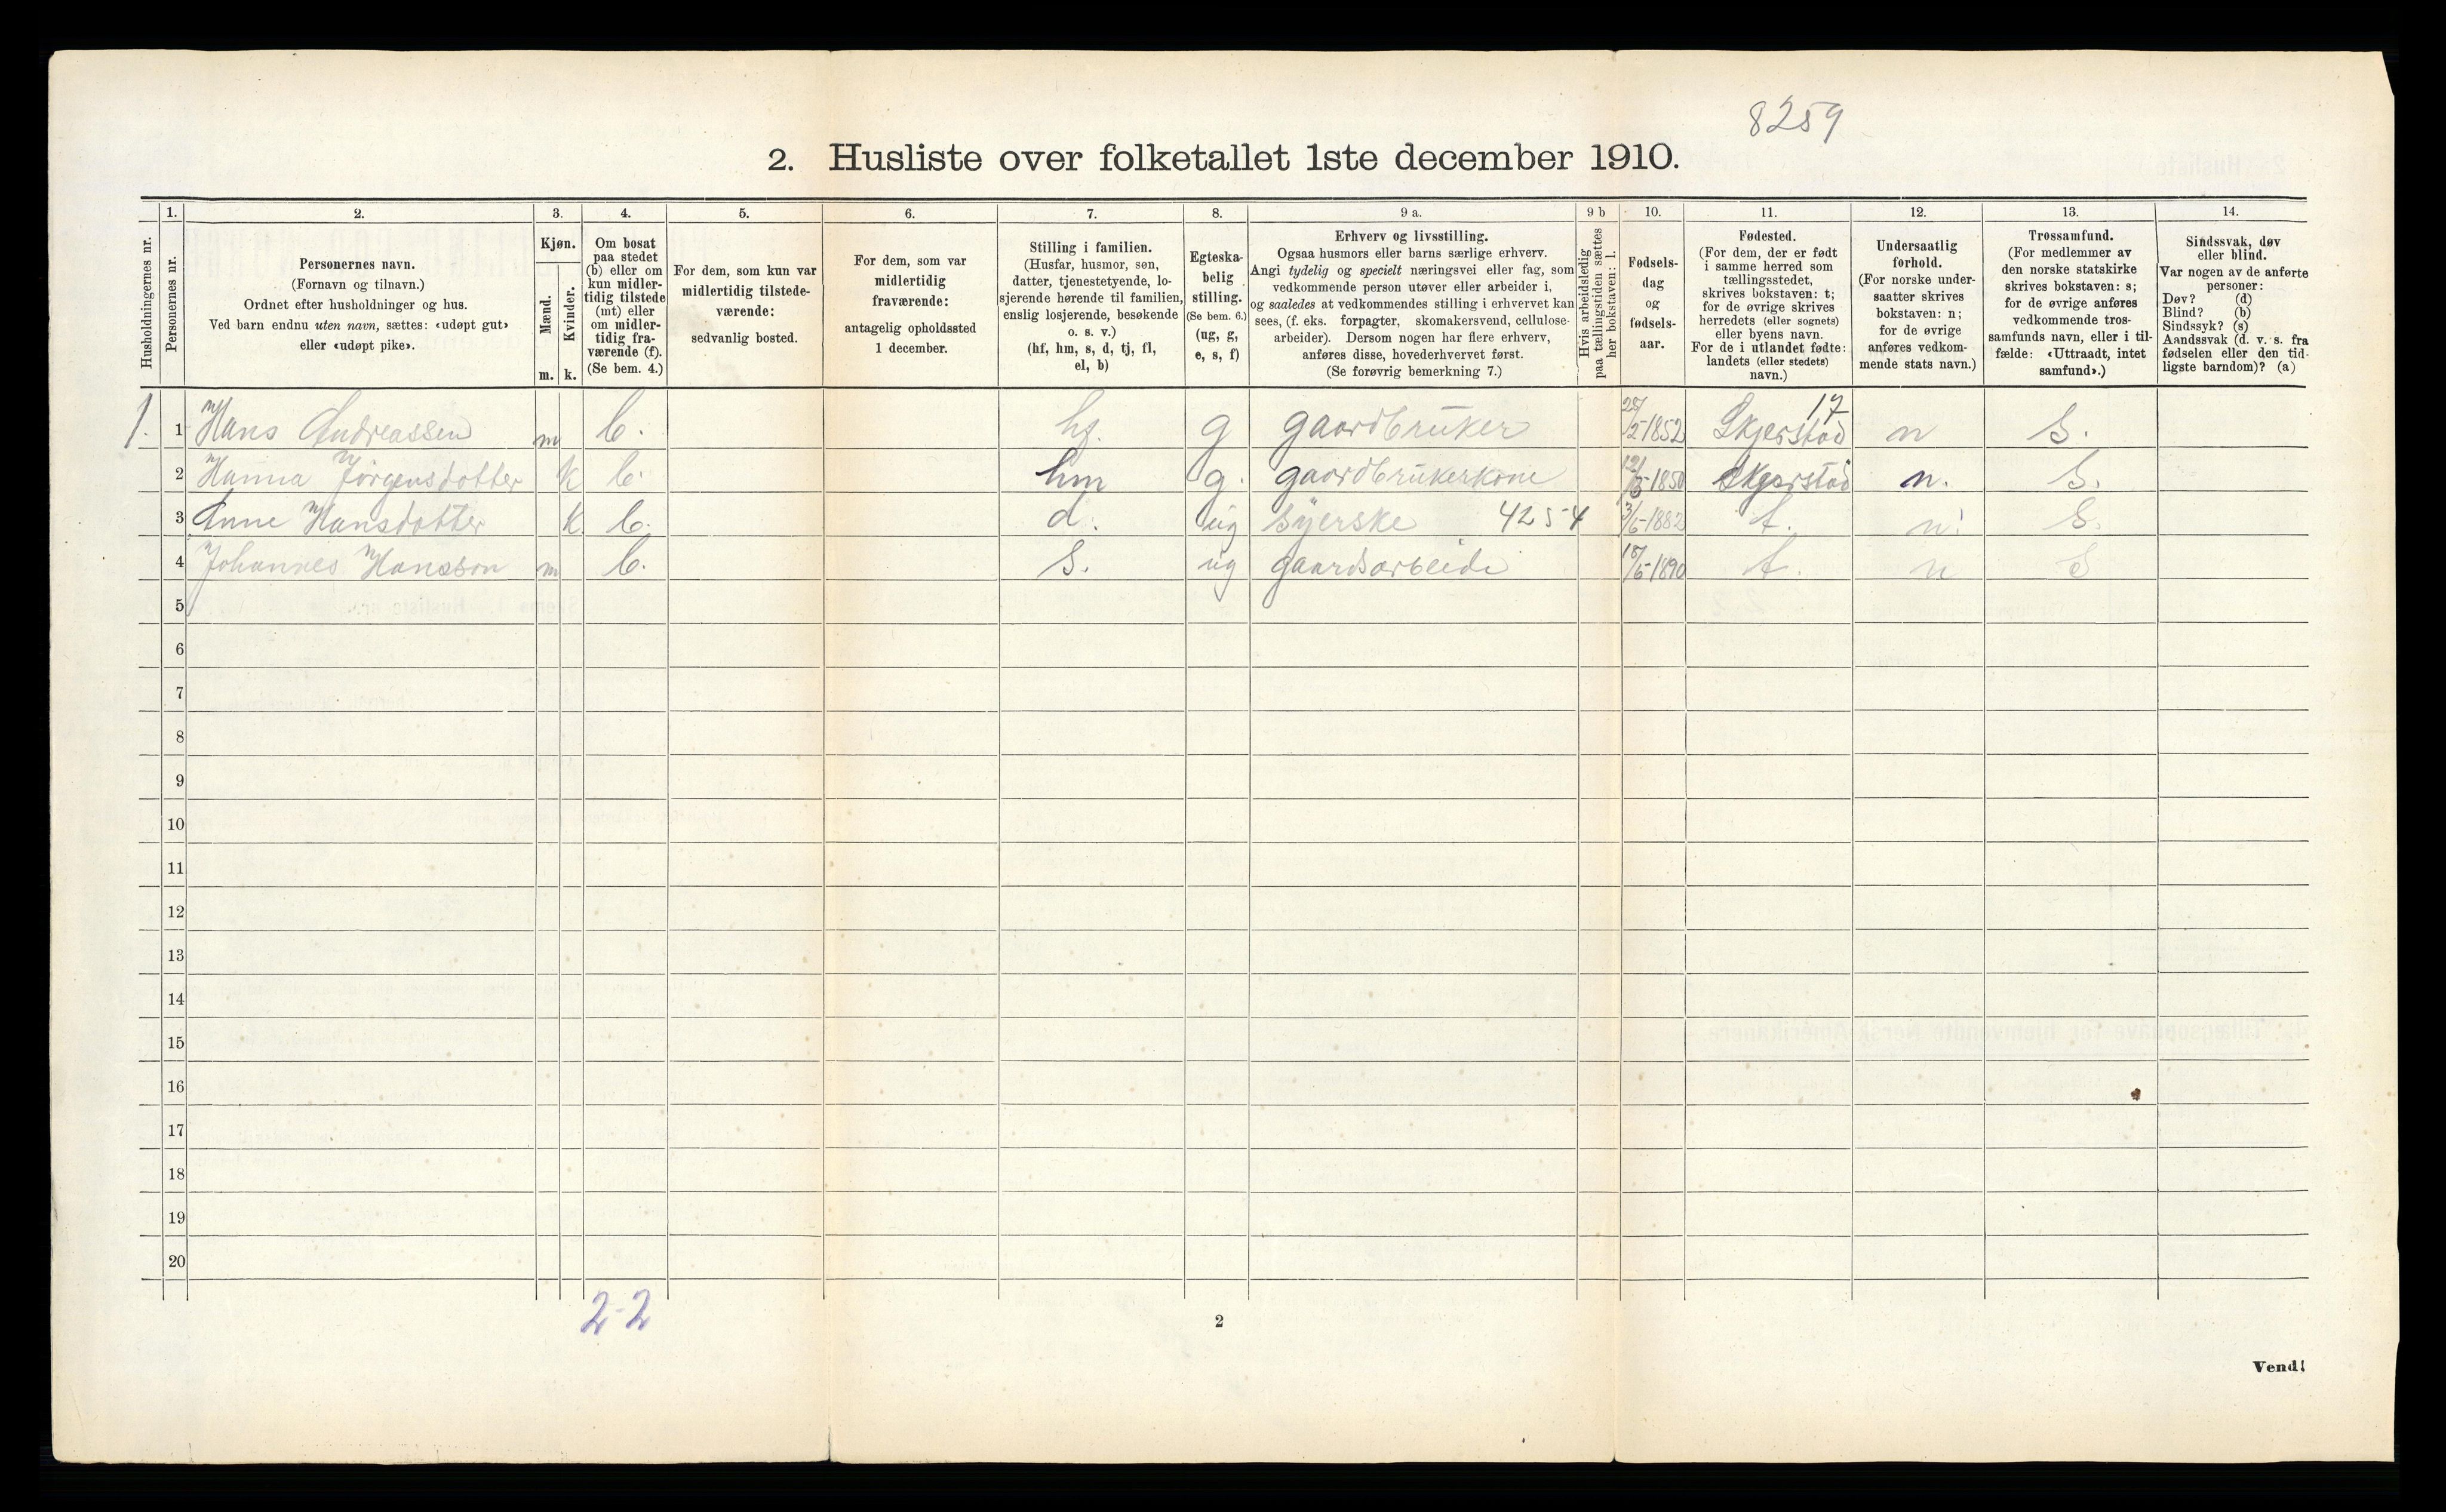 8259
2. Husliste over folketallet 1ste december 1910.
Husholdningernes nr.
1. Personernes nr.
2. Personernes navn.
(Fornavn og tilnavn.)
Ordnet efter husholdninger og hus.
Ved barn endnu uten navn, sættes: «udøpt gut»
eller «udøpt pike».
3. Kjøn.
Mænd. Kvinder.
m. k.
4. Om bosat
paa stedet
(b) eller om
kun midler-
tidig tilstede
(mt) eller
om midler-
tidig fra-
værende (f).
(Se bem. 4.)
5. For dem, som kun var
midlertidig tilstede-
værende:
sedvanlig bosted.
6. For dem, som var
midlertidig
fraværende:
antagelig opholdssted
1 december.
7. Stilling i familien.
(Husfar, husmor, søn,
datter, tjenestetyende, lo-
sjerende hørende til familien,
enslig losjerende, besøkende
o. s. v.)
(hf, hm, s, d, tj, fl,
el, b)
8. Egteska-
belig
stilling.
(Se bem. 6.)
(ug, g,
e, s, f)
9 a. Erhverv og livsstilling.
Ogsaa husmors eller barns særlige erhverv.
Angi tydelig og specielt næringsvei eller fag, som
vedkommende person utøver eller arbeider i,
og saaledes at vedkommendes stilling i erhvervet kan
sees, (f. eks. forpagter, skomakersvend, cellulose-
arbeider). Dersom nogen har flere erhverv,
anføres disse, hovederhvervet først.
(Se forøvrig bemerkning 7.)
9 b Hvis arbeidsledig
paa tællingstiden sættes
her bokstaven: l.
10. Fødsels-
dag
og
fødsels-
aar.
11. Fødested.
(For dem, der er født
i samme herred som
tællingsstedet,
skrives bokstaven: t;
for de øvrige skrives
herredets (eller sognets)
eller byens navn.
For de i utlandet fødte:
landets (eller stedets)
navn.)
12. Undersaatlig
forhold.
(For norske under-
saatter skrives
bokstaven: n;
for de øvrige
anføres vedkom-
mende stats navn.)
13. Trossamfund.
(For medlemmer av
den norske statskirke
skrives bokstaven: s;
for de øvrige anføres
vedkommende tros-
samfunds navn, eller i til-
fælde: «Uttraadt, intet
samfund».)
14. Sindssvak, døv
eller blind.
Var nogen av de anførte
personer:
Døv? (d)
Blind? (b)
Sindssyk? (s)
Aandssvak (d. v. s. fra
fødselen eller den tid-
ligste barndom)? (a)
17
1. 1 Hans Andreassen m b. hf. g gaardbruker 1852 Skjerstad n S.
2 Hanna Jörgensdotter k b. hm g. gaardbrukerkone 1850 Skjerstad n. S.
3 Anne Hansdotter k. b. d. ug syerske 4254 3/6-1882 t. n. S.
4 Johannes Hansson m b. S. ug gaardsarbeide 1890 t. n S
5
6
7
8
9
10
11
12
13
14
15
16
17
18
19
20
2-2
2
Vend!